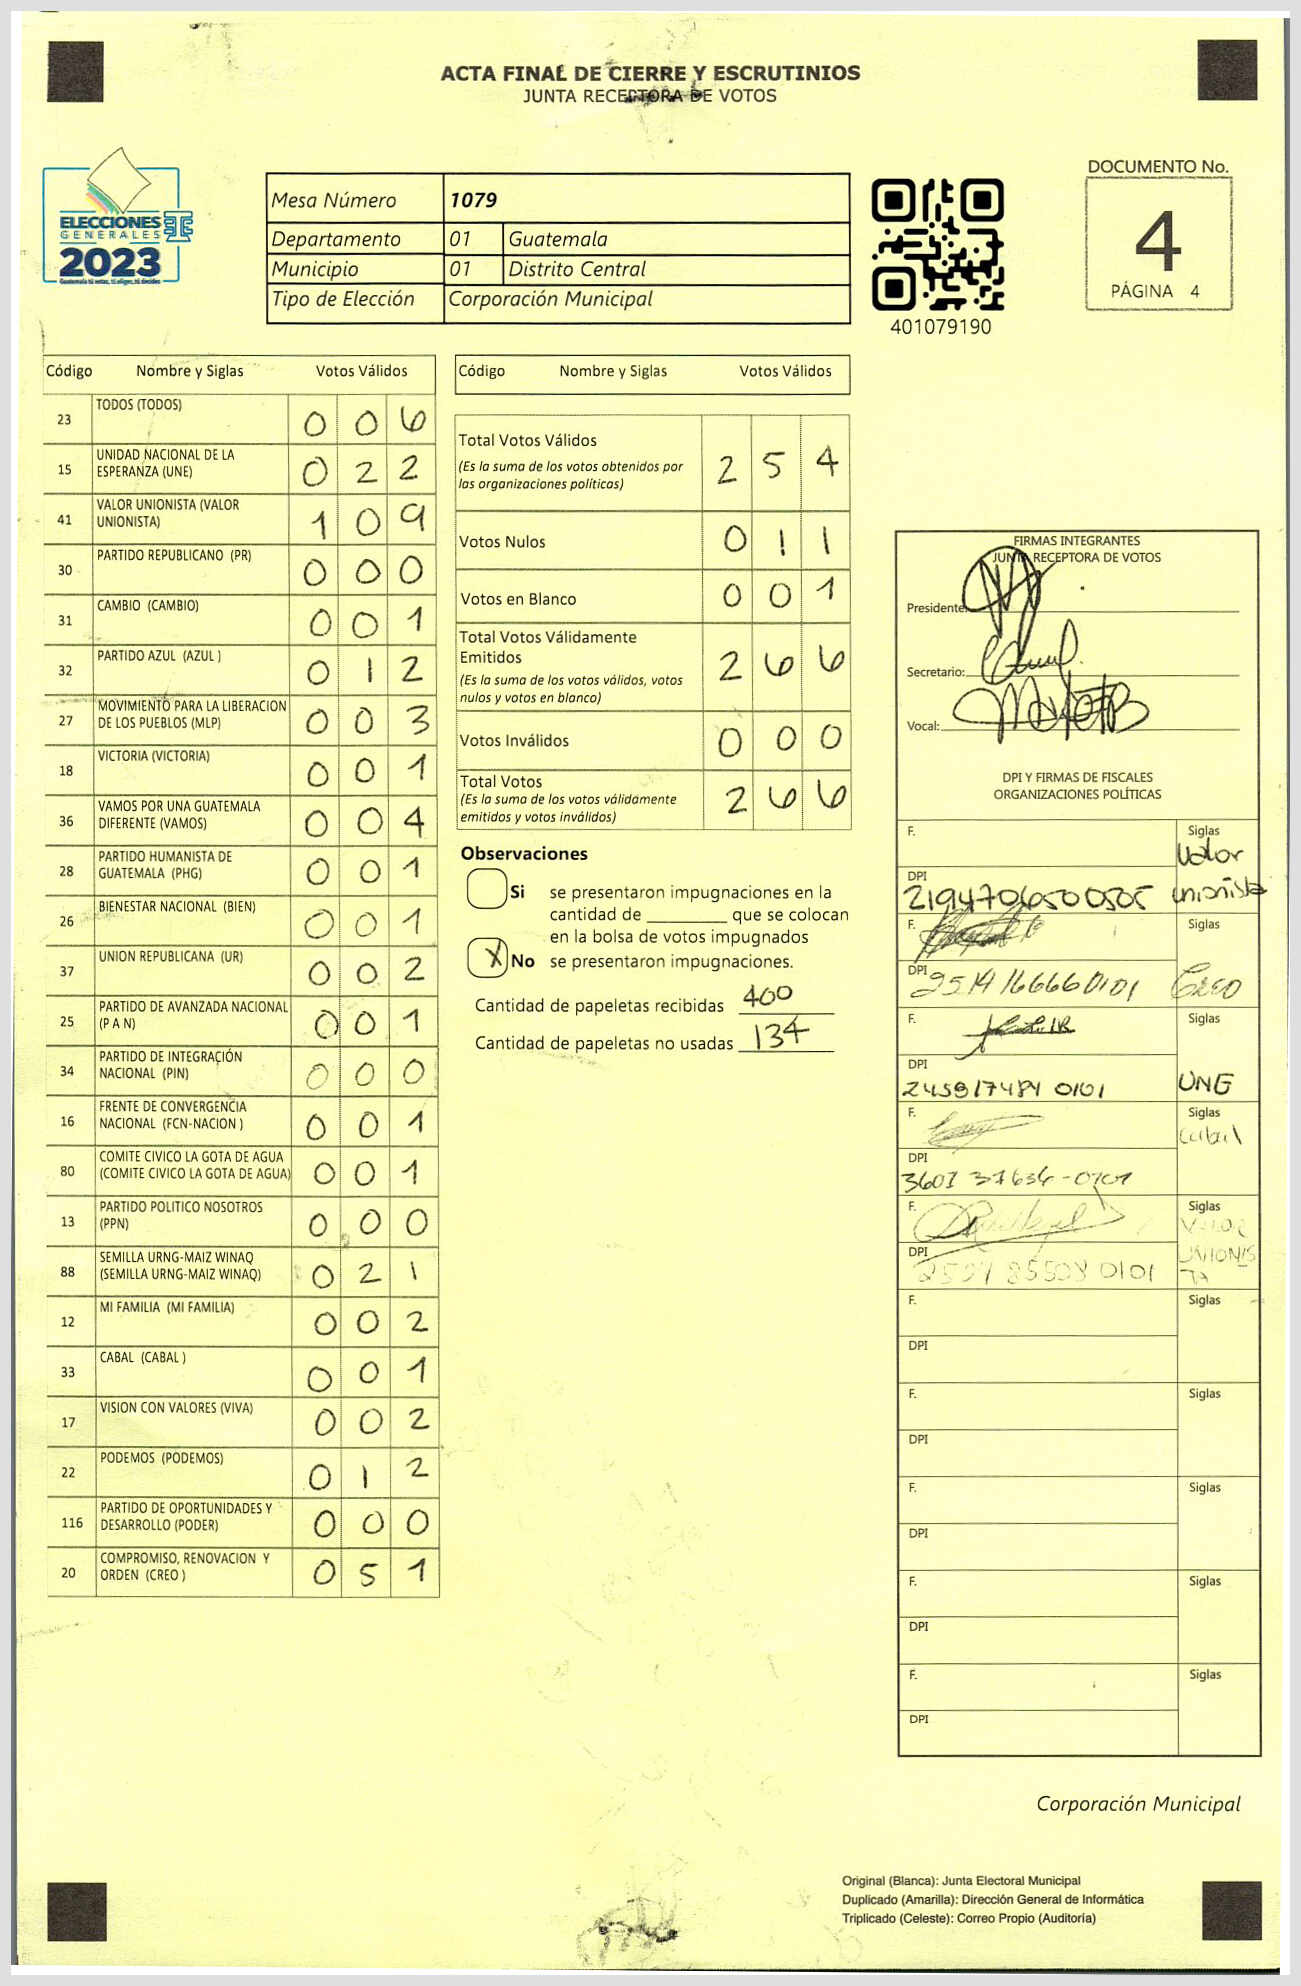 ACTA FINAL DE CIERRE Y ESCRUTINIOS
JUNTA RECEPTORA DE VOTOS
ELECCIONES
GENERALES
2023
Guatemala tú votas, tú eliges, tú decides
Mesa Número 1079
Departamento 01 Guatemala
Municipio 01 Distrito Central
Tipo de Elección Corporación Municipal
401079190
DOCUMENTO No.
4
PÁGINA 4
Código Nombre y Siglas Votos Válidos
23 TODOS (TODOS) 0 0 6
15 UNIDAD NACIONAL DE LA
ESPERANZA (UNE) 0 2 2
41 VALOR UNIONISTA (VALOR
UNIONISTA) 1 0 9
30 PARTIDO REPUBLICANO (PR) 0 0 0
31 CAMBIO (CAMBIO) 0 0 1
32 PARTIDO AZUL (AZUL ) 0 1 2
27 MOVIMIENTO PARA LA LIBERACION
DE LOS PUEBLOS (MLP) 0 0 3
18 VICTORIA (VICTORIA) 0 0 1
36 VAMOS POR UNA GUATEMALA
DIFERENTE (VAMOS) 0 0 4
28 PARTIDO HUMANISTA DE
GUATEMALA (PHG) 0 0 1
26 BIENESTAR NACIONAL (BIEN) 0 0 1
37 UNION REPUBLICANA (UR) 0 0 2
25 PARTIDO DE AVANZADA NACIONAL
(P A N) 0 0 1
34 PARTIDO DE INTEGRACIÓN
NACIONAL (PIN) 0 0 0
16 FRENTE DE CONVERGENCIA
NACIONAL (FCN-NACION ) 0 0 1
80 COMITE CIVICO LA GOTA DE AGUA
(COMITE CIVICO LA GOTA DE AGUA) 0 0 1
13 PARTIDO POLITICO NOSOTROS
(PPN) 0 0 0
88 SEMILLA URNG-MAIZ WINAQ
(SEMILLA URNG-MAIZ WINAQ) 0 2 1
12 MI FAMILIA (MI FAMILIA) 0 0 2
33 CABAL (CABAL ) 0 0 1
17 VISION CON VALORES (VIVA) 0 0 2
22 PODEMOS (PODEMOS) 0 1 2
116 PARTIDO DE OPORTUNIDADES Y
DESARROLLO (PODER) 0 0 0
20 COMPROMISO, RENOVACION Y
ORDEN (CREO ) 0 5 1
Código Nombre y Siglas Votos Válidos
Total Votos Válidos 2 5 4
(Es la suma de los votos obtenidos por
las organizaciones políticas)
Votos Nulos 0 1 1
Votos en Blanco 0 0 1
Total Votos Válidamente
Emitidos 2 6 6
(Es la suma de los votos válidos, votos
nulos y votos en blanco)
Votos Inválidos 0 0 0
Total Votos 2 6 6
(Es la suma de los votos válidamente
emitidos y votos inválidos)
Observaciones
Si se presentaron impugnaciones en la
cantidad de ________ que se colocan
en la bolsa de votos impugnados
X No se presentaron impugnaciones.
Cantidad de papeletas recibidas 400
Cantidad de papeletas no usadas 134
FIRMAS INTEGRANTES
JUNTA RECEPTORA DE VOTOS
Presidente:
Secretario:
Vocal:
DPI Y FIRMAS DE FISCALES
ORGANIZACIONES POLÍTICAS
F. Siglas
Valor
DPI
2194706500505 unionista
F. Siglas
DPI 2514166660101 CREO
F. Siglas
DPI
2459174840101 UNE
F. Siglas
Cabal
DPI
F. Siglas
VALOR
DPI UNIONIS
TA
F. Siglas
DPI
F. Siglas
DPI
F. Siglas
DPI
F. Siglas
DPI
F. Siglas
DPI
Corporación Municipal
Original (Blanca): Junta Electoral Municipal
Duplicado (Amarilla): Dirección General de Informática
Triplicado (Celeste): Correo Propio (Auditoría)